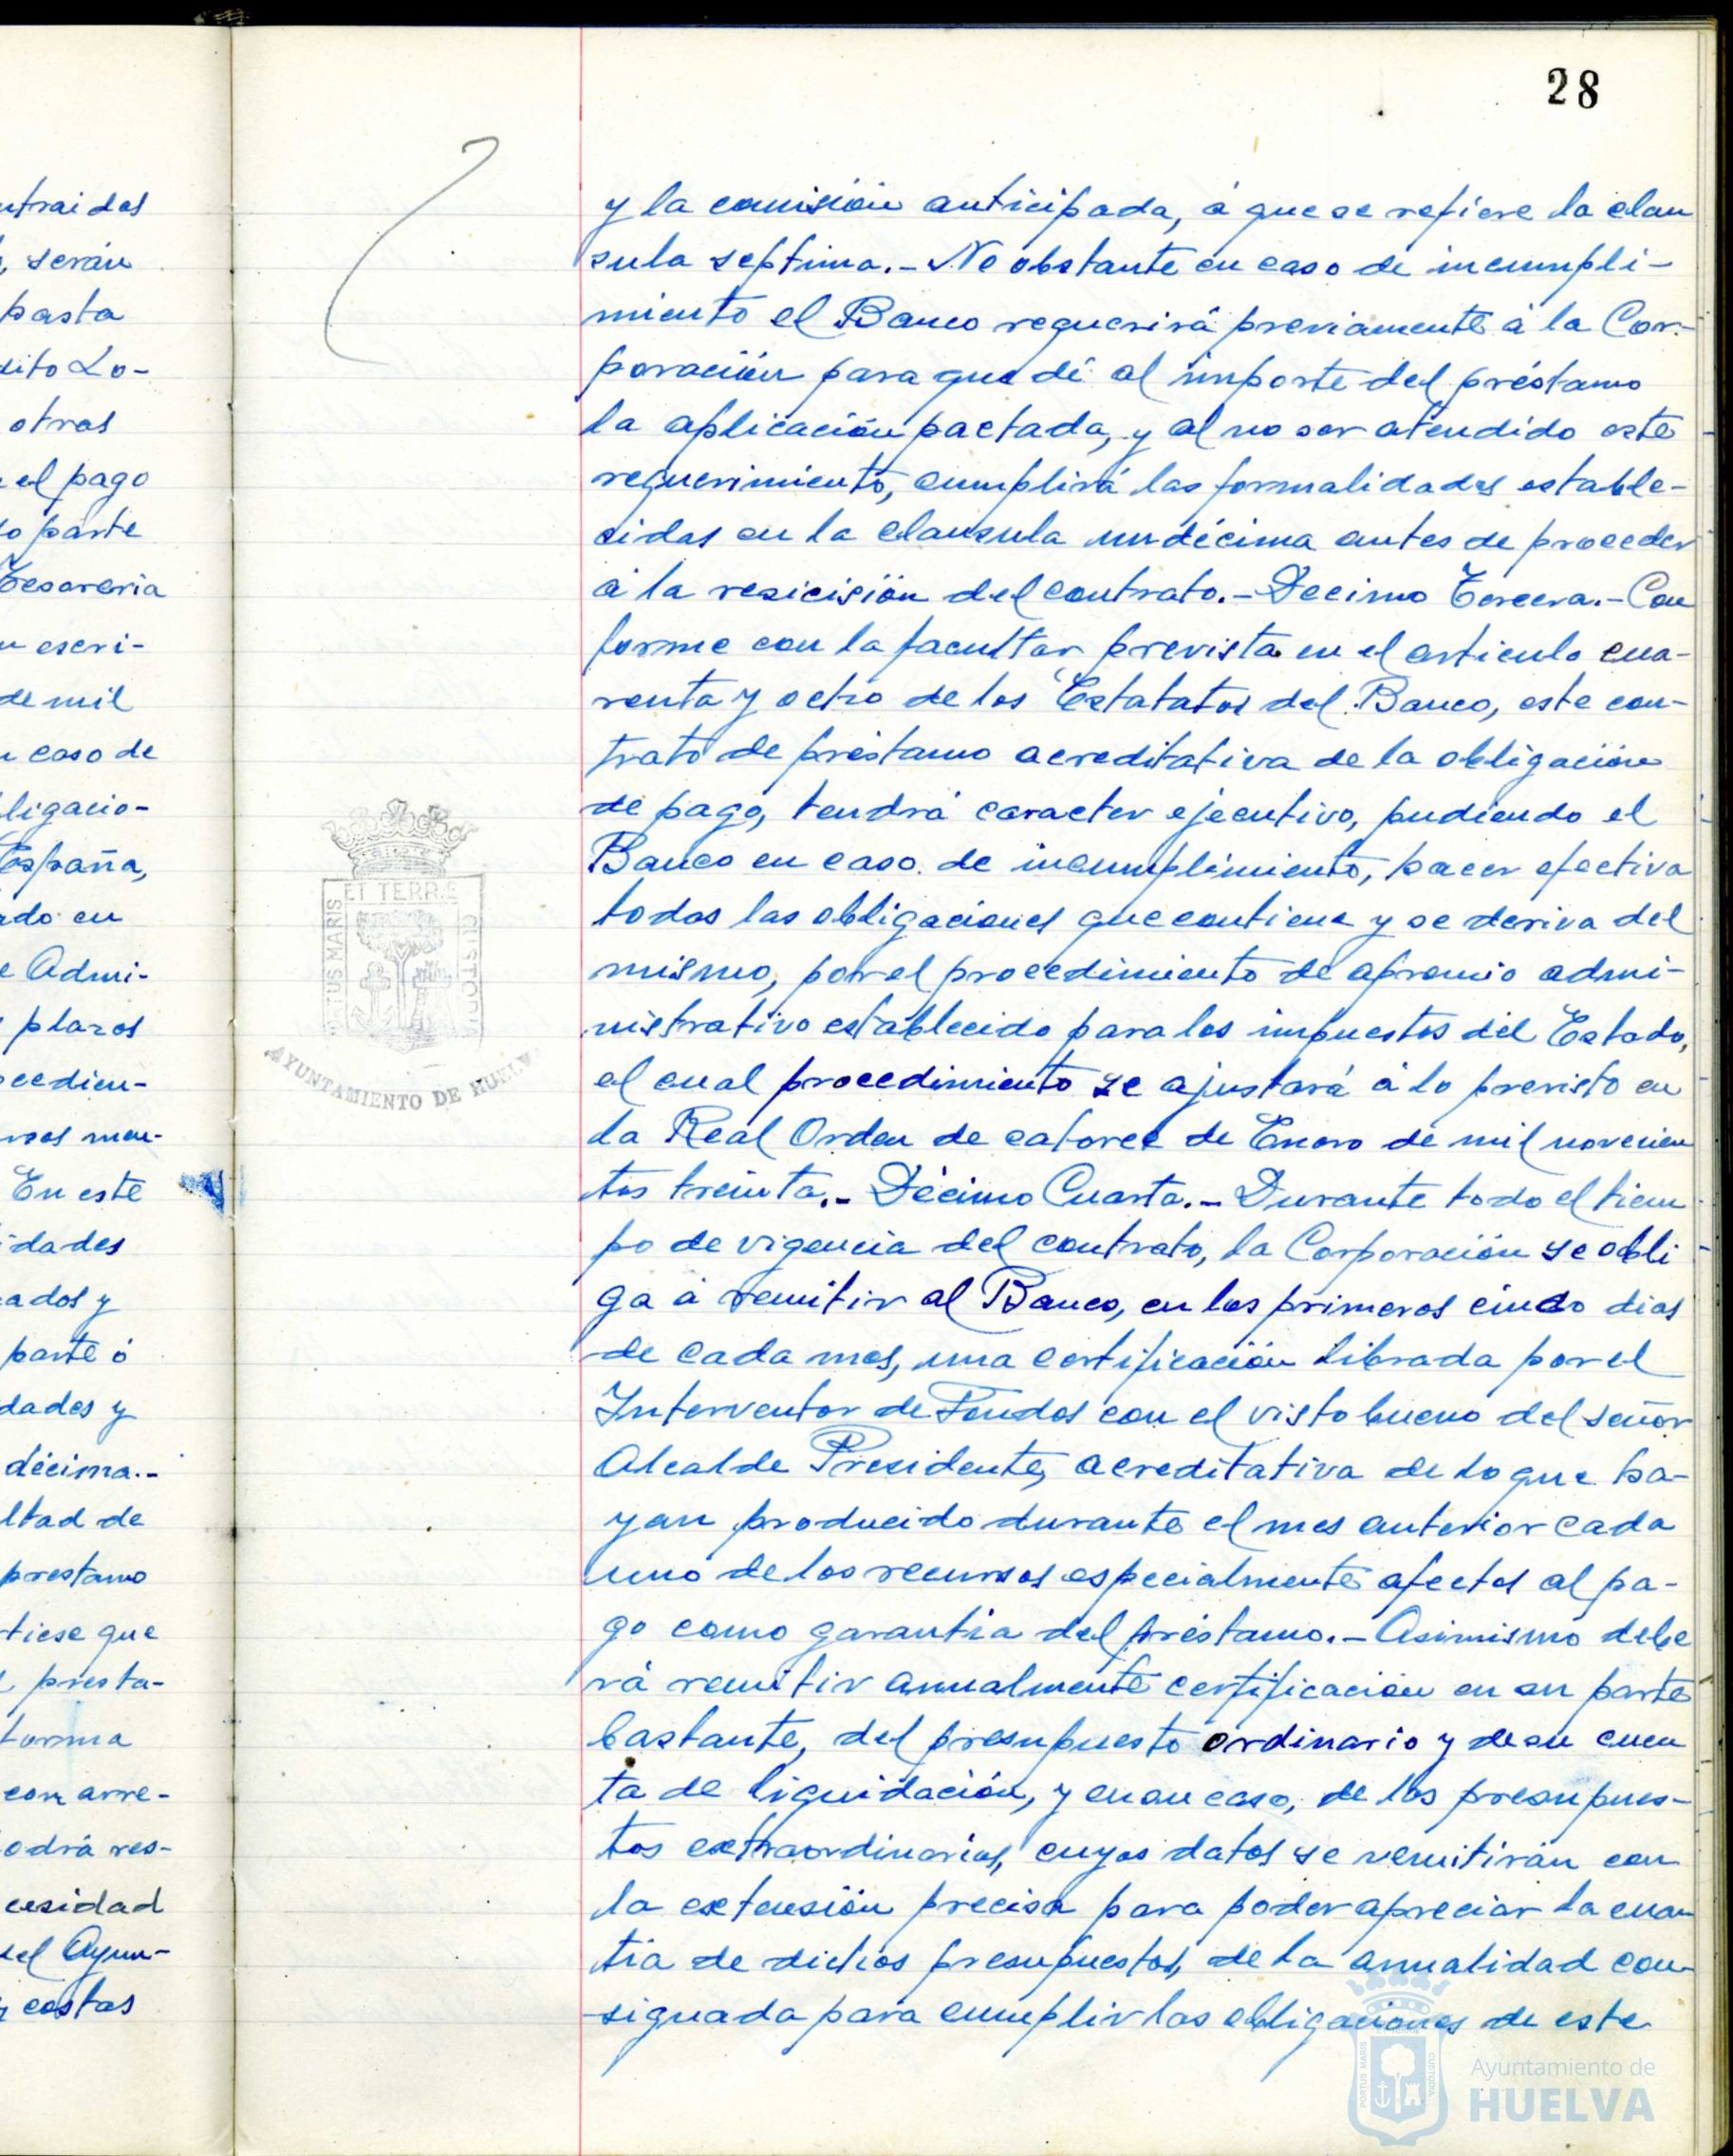 utraidos
, serán
pasta
dito Lo-
otras
el pago
o parte
Tesoreria
escri-
de mil
caso de
ligacio-
España,
ado en
e Admi-
plazos
cedien-
rsos men-
En este
idades
ados y
parte ó
dades y
décima.-
ltad de
prestamo
tiese que
presta-
forma
con arre-
odrá res-
cesidad
del Ayun-
costas
28
y la comisión anticipada, á que se refiere la clau
sula septima.- No obstante en caso de incumpli-
miento el Banco requerirá previamente á la Cor-
poración para que dé al importe del préstamo
la aplicación pactada, y al no ser atendido este
requerimiento, cumplirá las formalidades estable-
cidas en la clausula undécima antes de proceder
á la resicisión del contrato.- Decimo Tercera.- Con
forme con la facultar prevista en el articulo cua-
renta y ocho de los Estatatos del Banco, este con-
trato de préstamo acreditativa de la obligación
de pago, tendrá caracter ejecutivo, pudiendo el
Banco en caso de incumplimiento, hacer efectiva
todas las obligaciones que contiene y se deriva del
mismo, por el procedimiento de apremio admi-
nistrativo establecido para los impuestos del Estado,
el cual procedimiento se ajustará á lo previsto en
la Real Orden de catorce de Enero de mil novecien
tos treinta.- Décimo Cuarta.- Durante todo el tiem
po de vigencia del contrato, la Corporación se obli
ga á remitir al Banco, en los primeros cinco dias
de cada mes, una certificación librada por el
Interventor de Fondos con el visto bueno del señor
Alcalde Presidente, acreditativa de lo que ha-
yan producido durante el mes anterior cada
uno de los recursos especialmente afectos al pa-
go como garantia del préstamo.- Asimismo debe
rá remitir anualmente certificación en su parte
bastante, del presupuesto ordinario y de su cuen
ta de liquidación, y en su caso, de los presupues-
tos extraordinarios, cuyos datos se remitirán con
la extensión precisa para poder apreciar la cuan
tia de dichos presupuestos, de la anualidad con-
signada para cumplir las obligaciones de este
ET TERRÆ
PORTUS MARIS
CUSTODIA
AYUNTAMIENTO DE HUELV
PORTUS MARIS
CUSTODIA
Ayuntamiento de
HUELVA